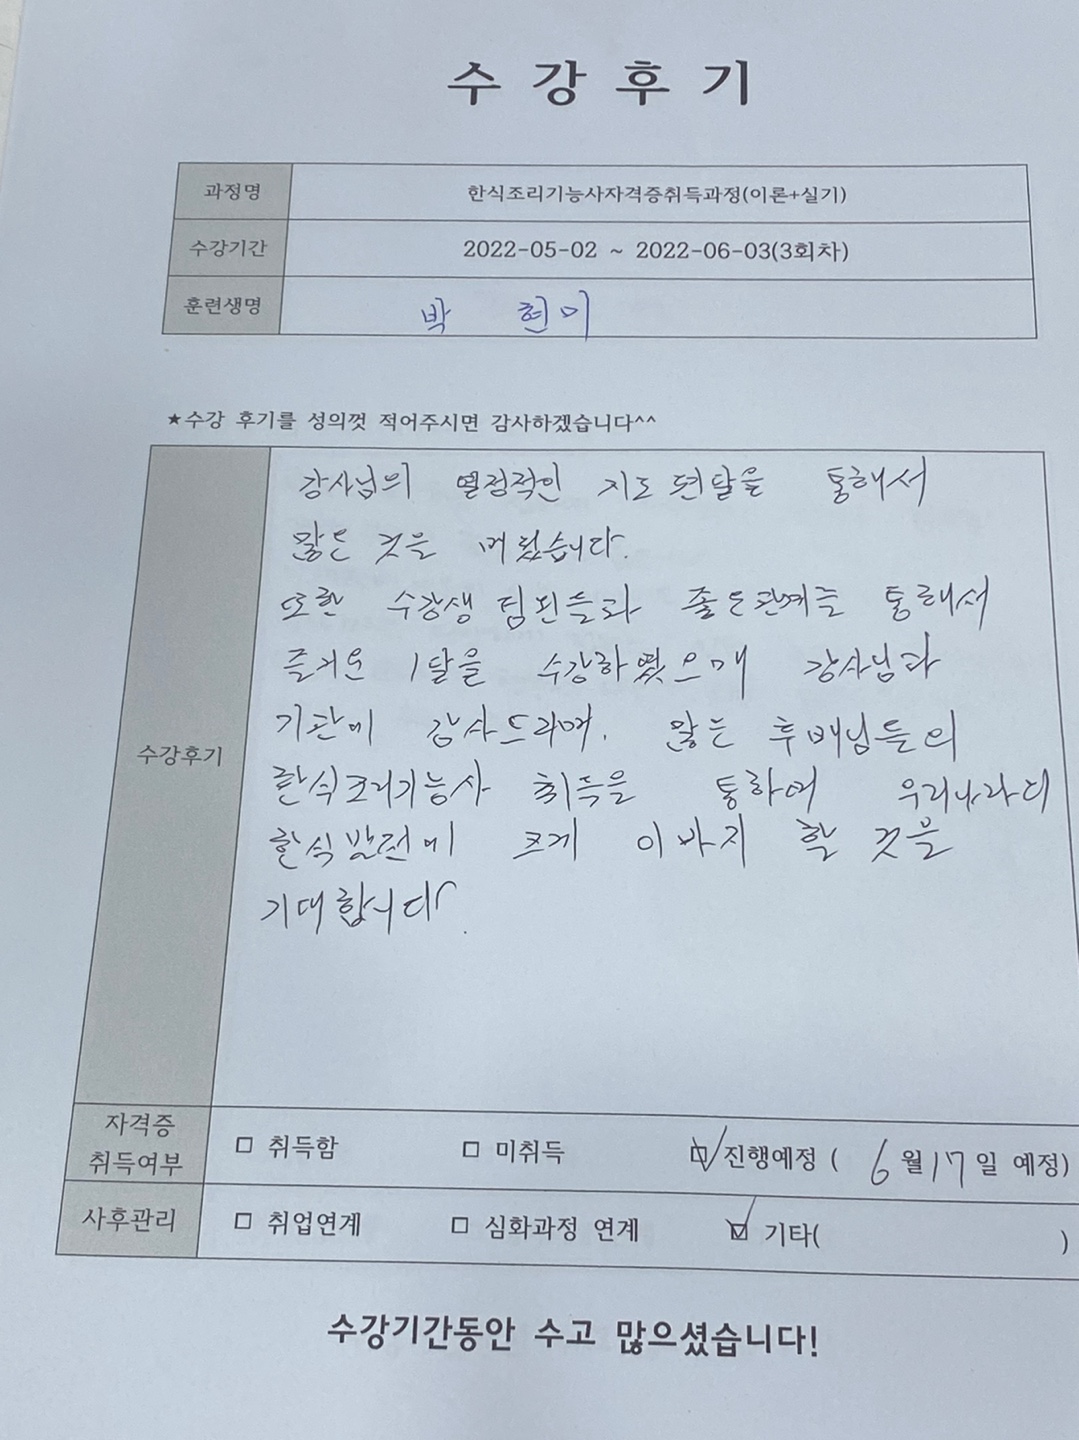 수강후기
과정명 한식조리기능사자격증취득과정(이론+실기)
수강기간 2022-05-02 ~ 2022-06-03(3회차)
훈련생명 박 현미
★수강 후기를 성의껏 적어주시면 감사하겠습니다^^
수강후기
강사님의 열정적인 지도 편달을 통해서
많은 것을 배웠습니다.
또한 수강생 팀원들과 좋은관계를 통해서
즐거운 1달을 수강하였으며 강사님과
기관에 감사드리며, 많은 후배님들의
한식조리기능사 취득을 통하여 우리나라의
한식발전에 크게 이바지 할 것을
기대합니다.
자격증 취득여부 □ 취득함 □ 미취득 ☑ 진행예정 ( 6월 17일 예정)
사후관리 □ 취업연계 □ 심화과정 연계 ☑ 기타( )
수강기간동안 수고 많으셨습니다!